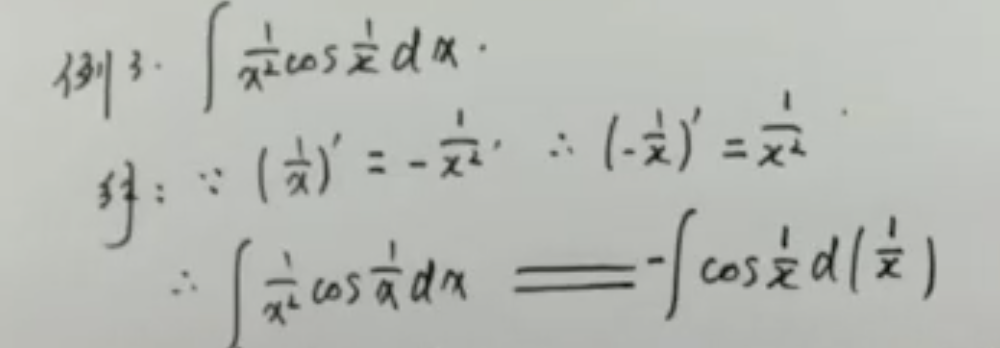 例3. ∫ 1/x² cos 1/x dx.
解: ∵ (1/x)' = -1/x², ∴ (-1/x)' = 1/x²
∴ ∫ 1/x² cos 1/x dx = -∫ cos 1/x d(1/x)